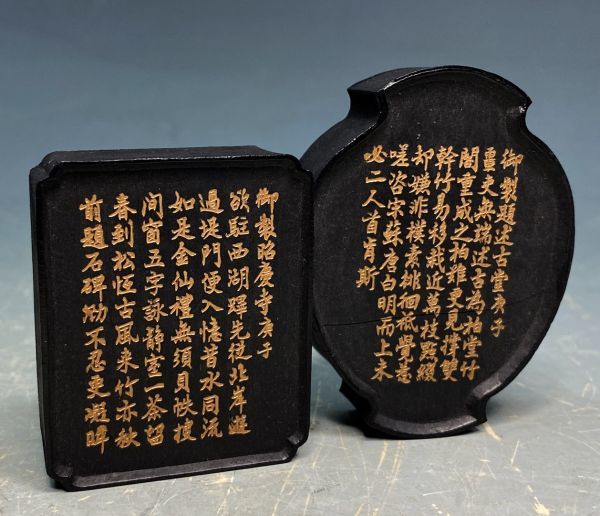 御製昭慶寺庚子
欲駐西湖蹕先從北岸遊
過堤門便入憶昔水同流
如是金仙禮無須貝帙搜
間窗五字詠靜室一茶留
春到松恒古風来竹亦秋
前題石碑泐不忍更凝眸
御製題述古堂庚子
夫無端述古為柏堂竹
閣重成之柏難更見撐雙
幹竹易移栽近萬枝點綴
却嫌非樸素徘徊祗覺惹
嗟咨宋蘇唐白明而上未
必二人首肯斯